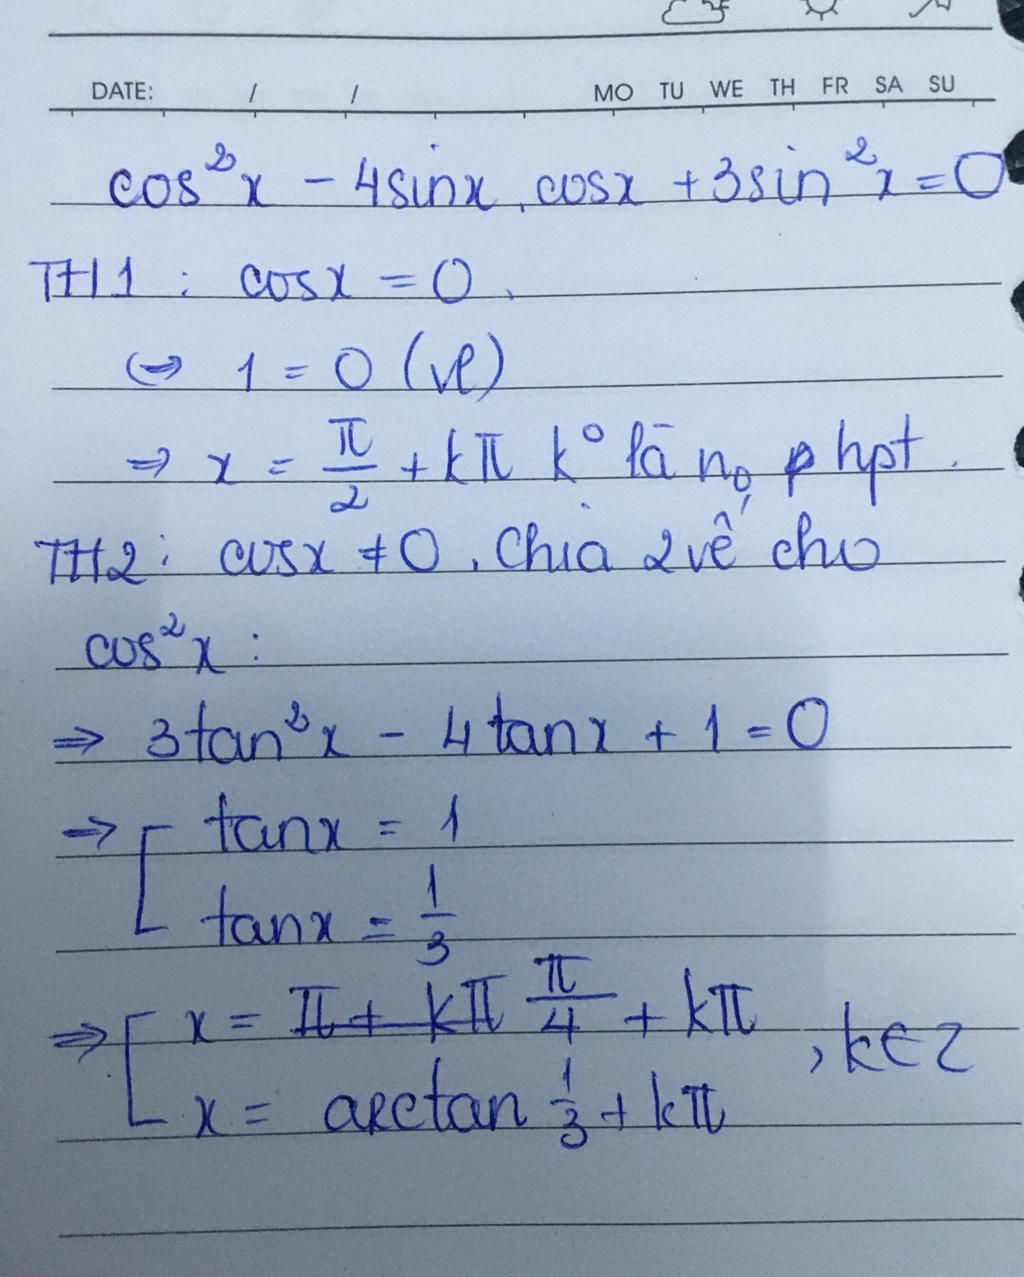 DATE: / / MO TU WE TH FR SA SU
cos²x - 4sinx.cosx + 3sin²x = 0
TH1 : cosx = 0.
(=> 1 = 0 (vl)
=> x = π/2 + kπ k° là n₀ phpt.
TH2 : cosx ≠ 0. Chia 2 vế cho
cos²x :
=> 3tan²x - 4tanx + 1 = 0
=> [ tanx = 1
tanx = 1/3
=> [ x = π + kπ π/4 + kπ , k∈Z
x = arctan 1/3 + kπ